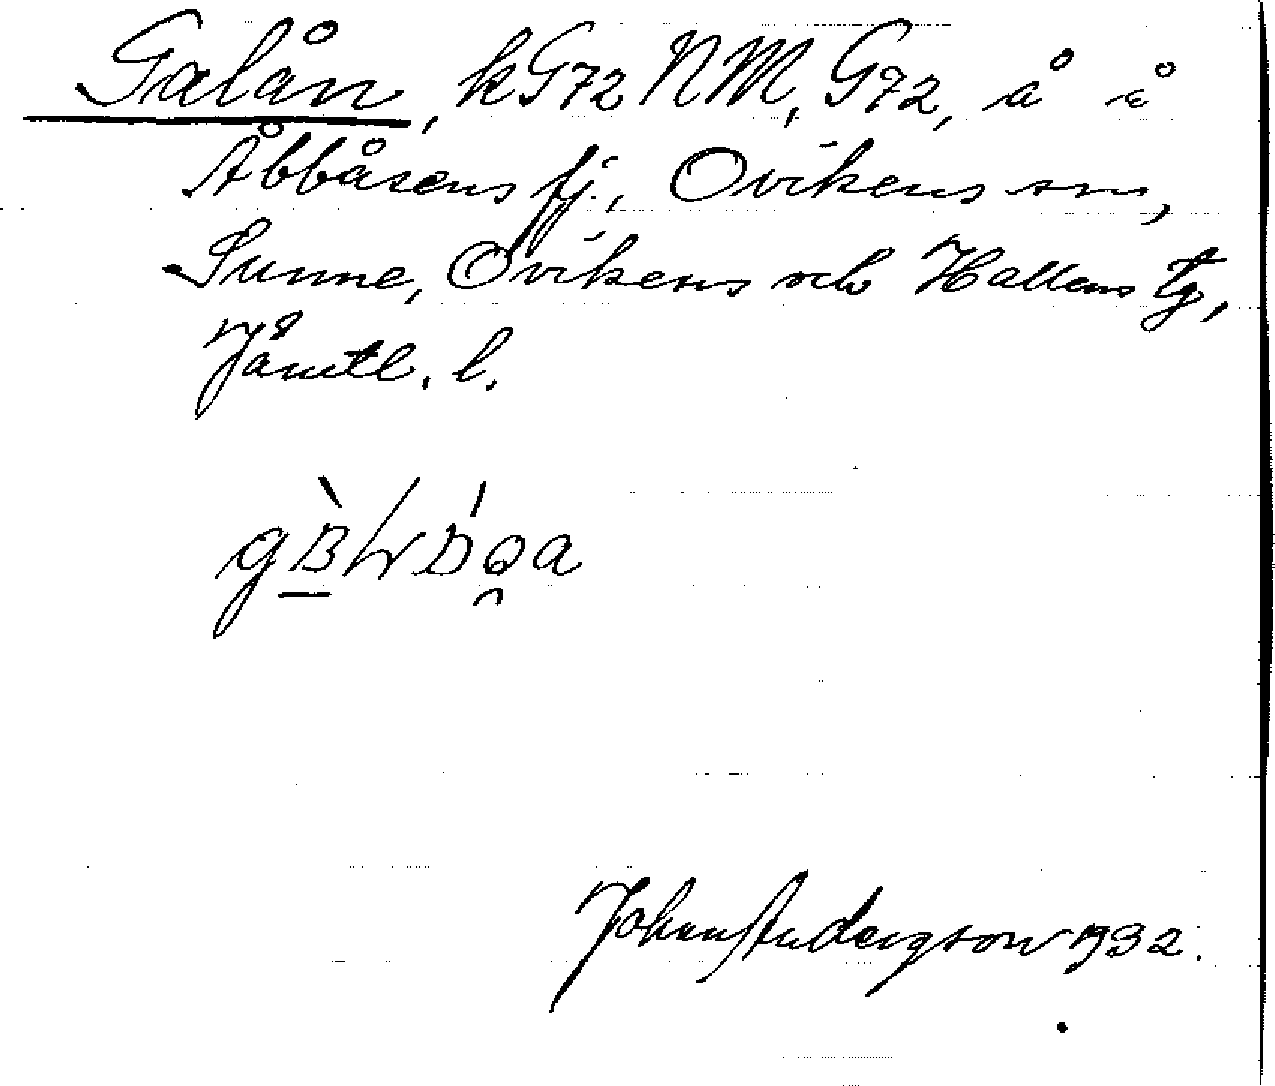 Galån, kG72NM, G72, å å
Åbbåsens fj., Ovikens sn,
Sunne, Ovikens och Hallens tg,
Jämtl. l.
Johan Andersson 1932.